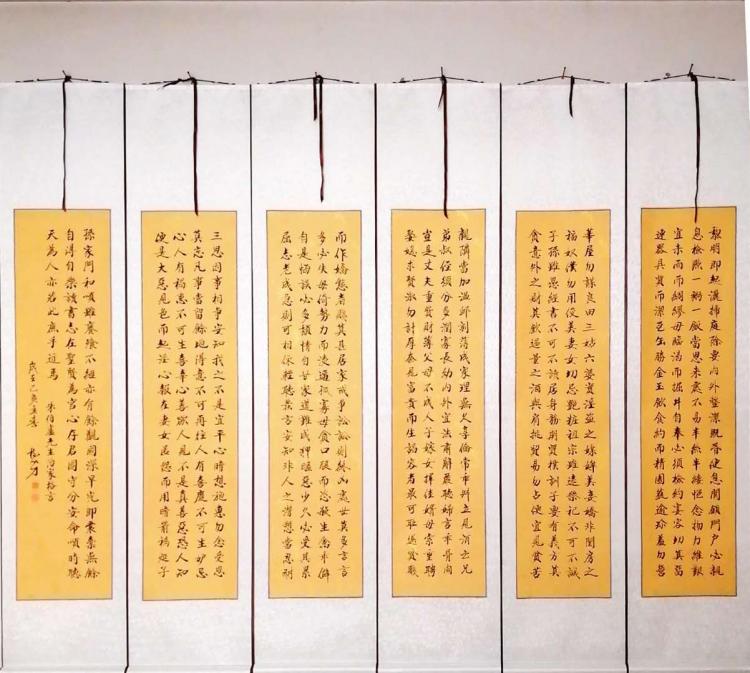 黎明即起灑掃庭除要內外整潔既昏便息關鎖門戶必親
自檢點一粥一飯當思來處不易半絲半縷恆念物力維艱
宜未雨而綢繆毋臨渴而掘井自奉必須檢約宴客切莫留
連器具質而潔瓦缶勝金玉飲食約而精園蔬逾珍羞勿營
華屋勿謀良田三姑六婆實淫盜之媒婢美妻嬌非閨房之
福奴僕勿用俊美妻女切忌艷粧祖宗雖遠祭祀不可不誠
子孫雖愚經書不可不讀居身務期質樸訓子要有義方莫
貪意外之財莫飲過量之酒與肩挑貿易勿占便宜見貧苦
親鄰當加溫卹刻薄成家理無久享倫常乖舛立見消亡兄
弟叔侄須分多潤寡長幼內外宜法肅辭嚴聽婦言乖骨肉
豈是丈夫重貲財薄父母不成人子嫁女擇佳婿毋索重聘
娶媳求賢淑勿計厚奩見富貴而生諂容者最可恥遇貧賤
而作嬌態者賤莫甚居家戒爭訟訟則終凶處世莫多言言
多必失毋倚勢力而凌逼孤寡毋貪口腹而恣殺生禽乖僻
自是悔誤必多頹惰自甘家道難成狎暱惡少久必受其累
屈志老成急則可相依輕聽發言安知非人之譖愬當忍耐
三思因事相爭安知我之不是宜平心暗想施惠勿念受恩
莫忘凡事當留餘地得意不可再往人有喜慶不可生妒忌
心人有禍患不可生喜幸心善欲人見不是真善惡恐人知
便是大惡見色而起淫心報在妻女匿怨而用暗箭禍延子
孫家門和順雖饔飧不繼亦有餘歡國課早完即囊橐無餘
自得至樂讀書志在聖賢為官心存君國守分安命順時聽
天為人亦若此庶乎近焉
朱伯盧先生治家格言